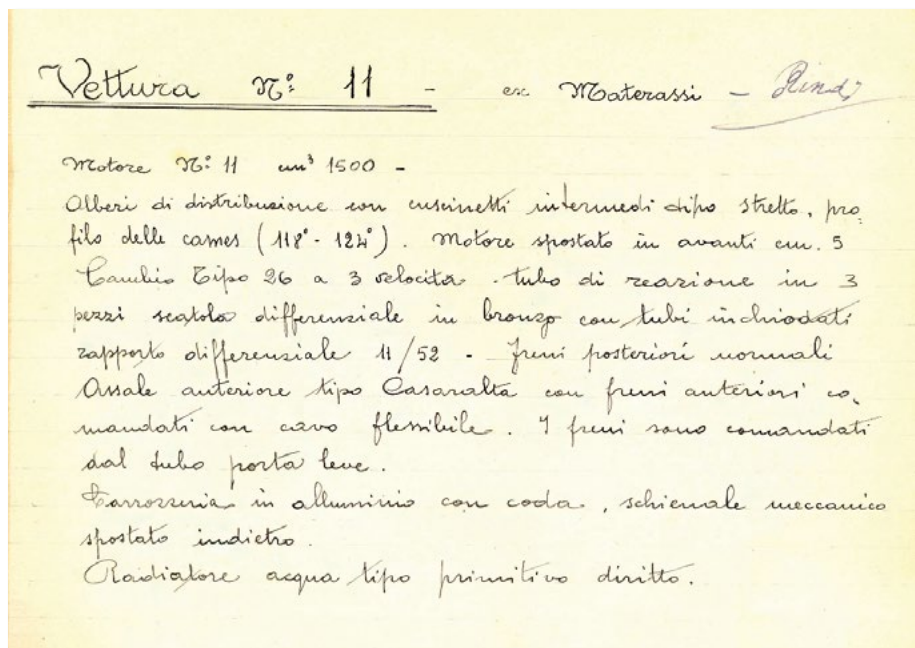 Vettura N°: 11 - ex Materassi - Rindi
Motore N°: 11 cm³ 1500 -
Alberi di distribuzione con cuscinetti intermedi dipo stretto, pro,
filo delle cames (118° - 124°). Motore spostato in avanti cm. 5
Cambio Tipo 26 a 3 velocità - tubo di reazione in 3
pezzi scatola differenziale in bronzo con tubi inchiodati
rapporto differenziale 11/52 - freni posteriori normali
Assale anteriore tipo Casaralta con freni anteriori co,
mandati con cavo flessibile. I freni sono comandati
dal tubo porta leve.
Carrozzeria in alluminio con coda, schienale meccanico
spostato indietro.
Radiatore acqua tipo primitivo diritto.